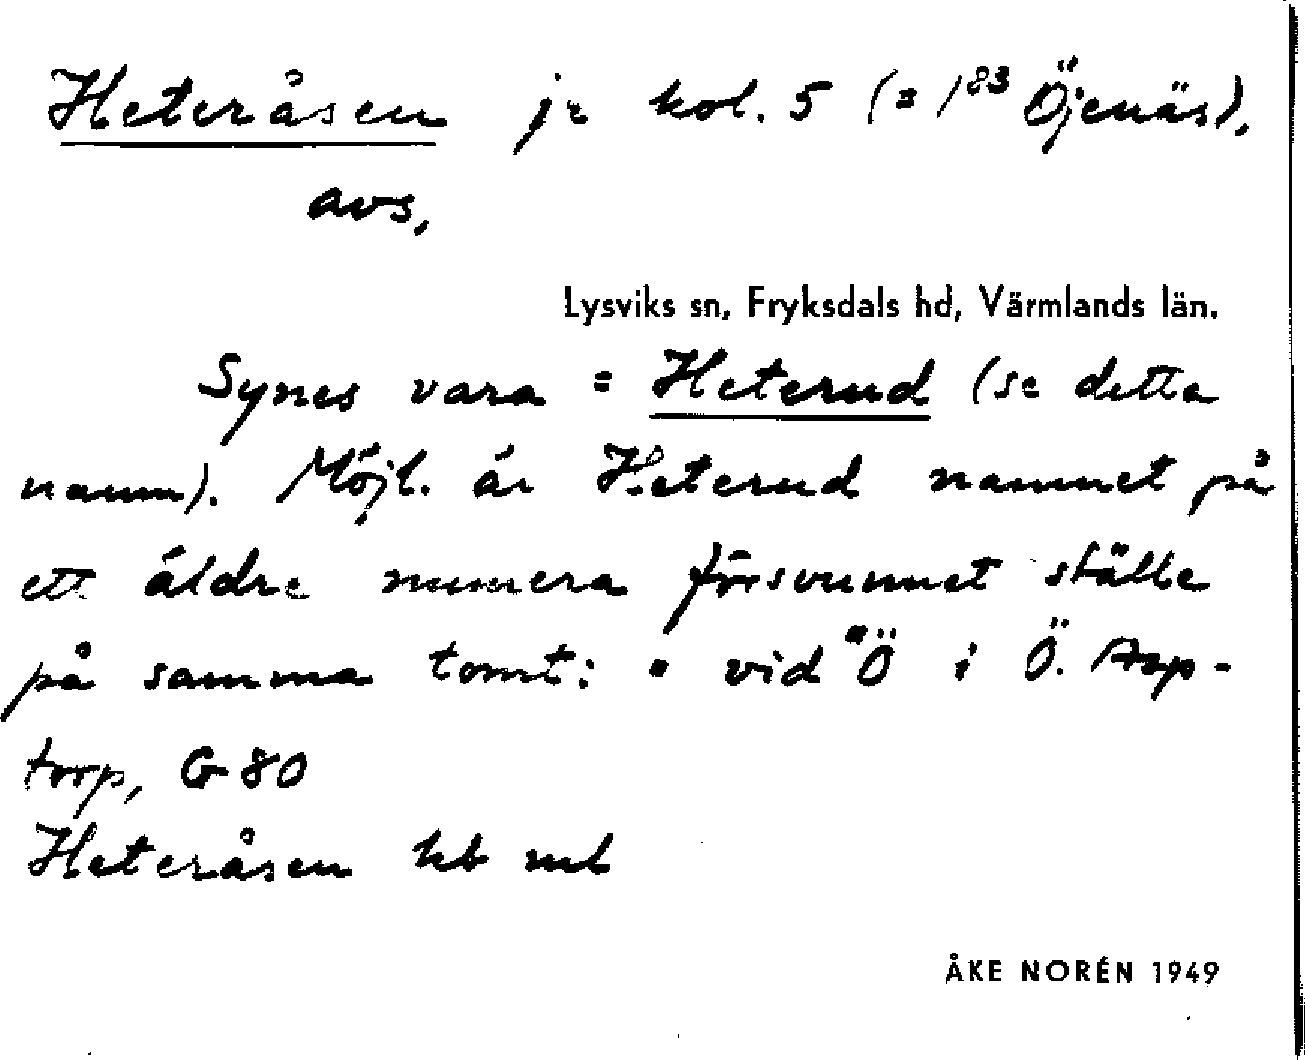 Heteråsen jr kol. 5 (= 1⁸³ Öjenäs),
avs,
Lysviks sn, Fryksdals hd, Värmlands län.
Synes vara = Heterud (se detta
namn). Möjl. är Heterud namnet på
ett äldre numera försvunnet ställe
på samma tomt: • vid "Ö i Ö. Asp-
torp, G 80
Heteråsen kb ml
ÅKE NORÉN 1949